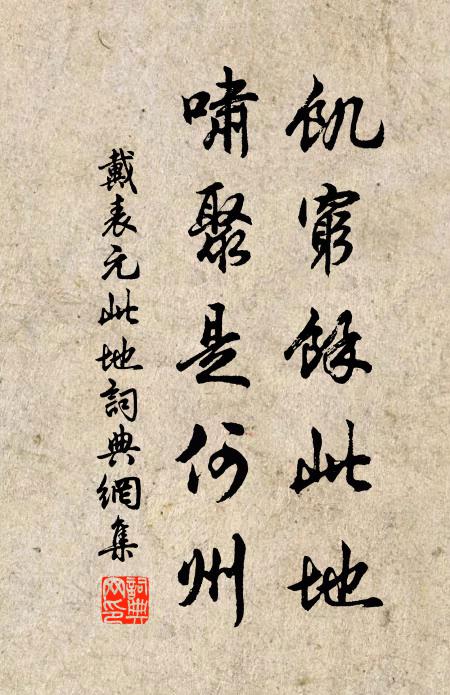 飢窮餘此地
嘯聚是何州
戴表元此地詞典網集
詞典網印